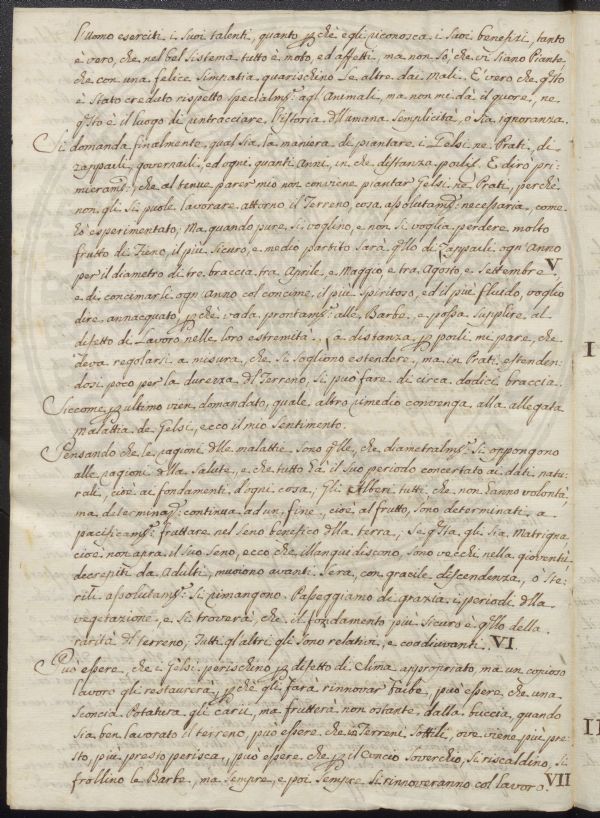 l'Uomo eserciti i suoi talenti, quanto pchè egli riconosca i suoi benefizi, tanto
è vero, che nel bel sistema tutto è moto, ed affetti, ma non sò, che vi siano Piante,
che con una felice simpatia guarischino le altre dai mali. E' vero che qsto
è stato creduto rispetto specialmte agl'Animali, ma non mi dà il quore, ne
qsto è il luogo di rintracciare l'istoria dll'umana semplicità, o sia ignoranza.
Si domanda finalmente, qual sia la maniera di piantare i Gelsi ne Prati, di
zappaili, governaili, ed ogni quanti Anni, in che distanza poili. E dirò pri=
mieramte, che al tenue parer mio non conviene piantar Gelsi ne Prati, perchè
non gli si puole lavorare attorno il Terreno, cosa assolutamte necessaria, come
hò esperimentato; Ma quando pure si voglino, e non si voglia perdere molto
frutto di Fieno, il più sicuro, e medio partito sarà qllo di Zappaili ogn'Anno
per il diametro di tre braccia tra Aprile, e Maggio e tra Agosto, e Settembre V
e di concimarli ogn'Anno col concime il più spiritoso, ed il più fluido, voglio
dire annacquato, pchè vada prontamte alle Barbe, e possa supplire al
difetto di Lavoro nelle loro estremità. La distanza p poili mi pare, che
deva regolarsi a misura, che si sogliono estendere, ma in Prati estenden=
dosi poco per la durezza dl Terreno, si può fare di circa dodici braccia.
Siccome p ultimo vien domandato, quale altro rimedio convenga alla allegata
malattia de Gelsi, ecco il mio sentimento.
Pensando che le cagioni dlle malattie sono qlle, che diametralmte si oppongono
alle cagioni dlla salute, e che tutto hà il suo periodo concertato ai dati natu=
rali, cioè ai fondamenti d'ogni cosa, gli Alberi tutti che non hanno volontà,
ma determinazne continua ad un fine, cioè al frutto, sono determinati a
pacificamte fruttare nel seno benefico dlla terra; Se qsta gli sia Matrigna,
cioè non apra il suo seno, ecco che illanguidiscano, sono vecchi nella gioventù
decrepiti da Adulti, muoiono avanti sera, con gracile discendenza, o ste=
rili assolutamte si rimangono. Passeggiamo di grazia i periodi dlla
vegetazione, e si troverà, che il fondamento più sicuro è qllo della
rarità dl terreno; Tutti gl'altri gli sono relativi, e coadiuvanti. VI
Può essere, che i Gelsi perischino p difetto di Clima appropriato, ma un copioso
lavoro gli restaurerà, pchè gli farà rinnovar Barbe, può essere, che una
sconcia Potatura gli carii, ma frutterà non ostante, dalla buccia, quando
sia ben lavorato il terreno, può essere che in Terreni sottili, ove viene più pre=
sto, più presto perisca, può essere che p il Concio soverchio, si riscaldino, si
frollino le Barbe, ma sempre, e poi sempre si rinnoveranno col lavoro. VII